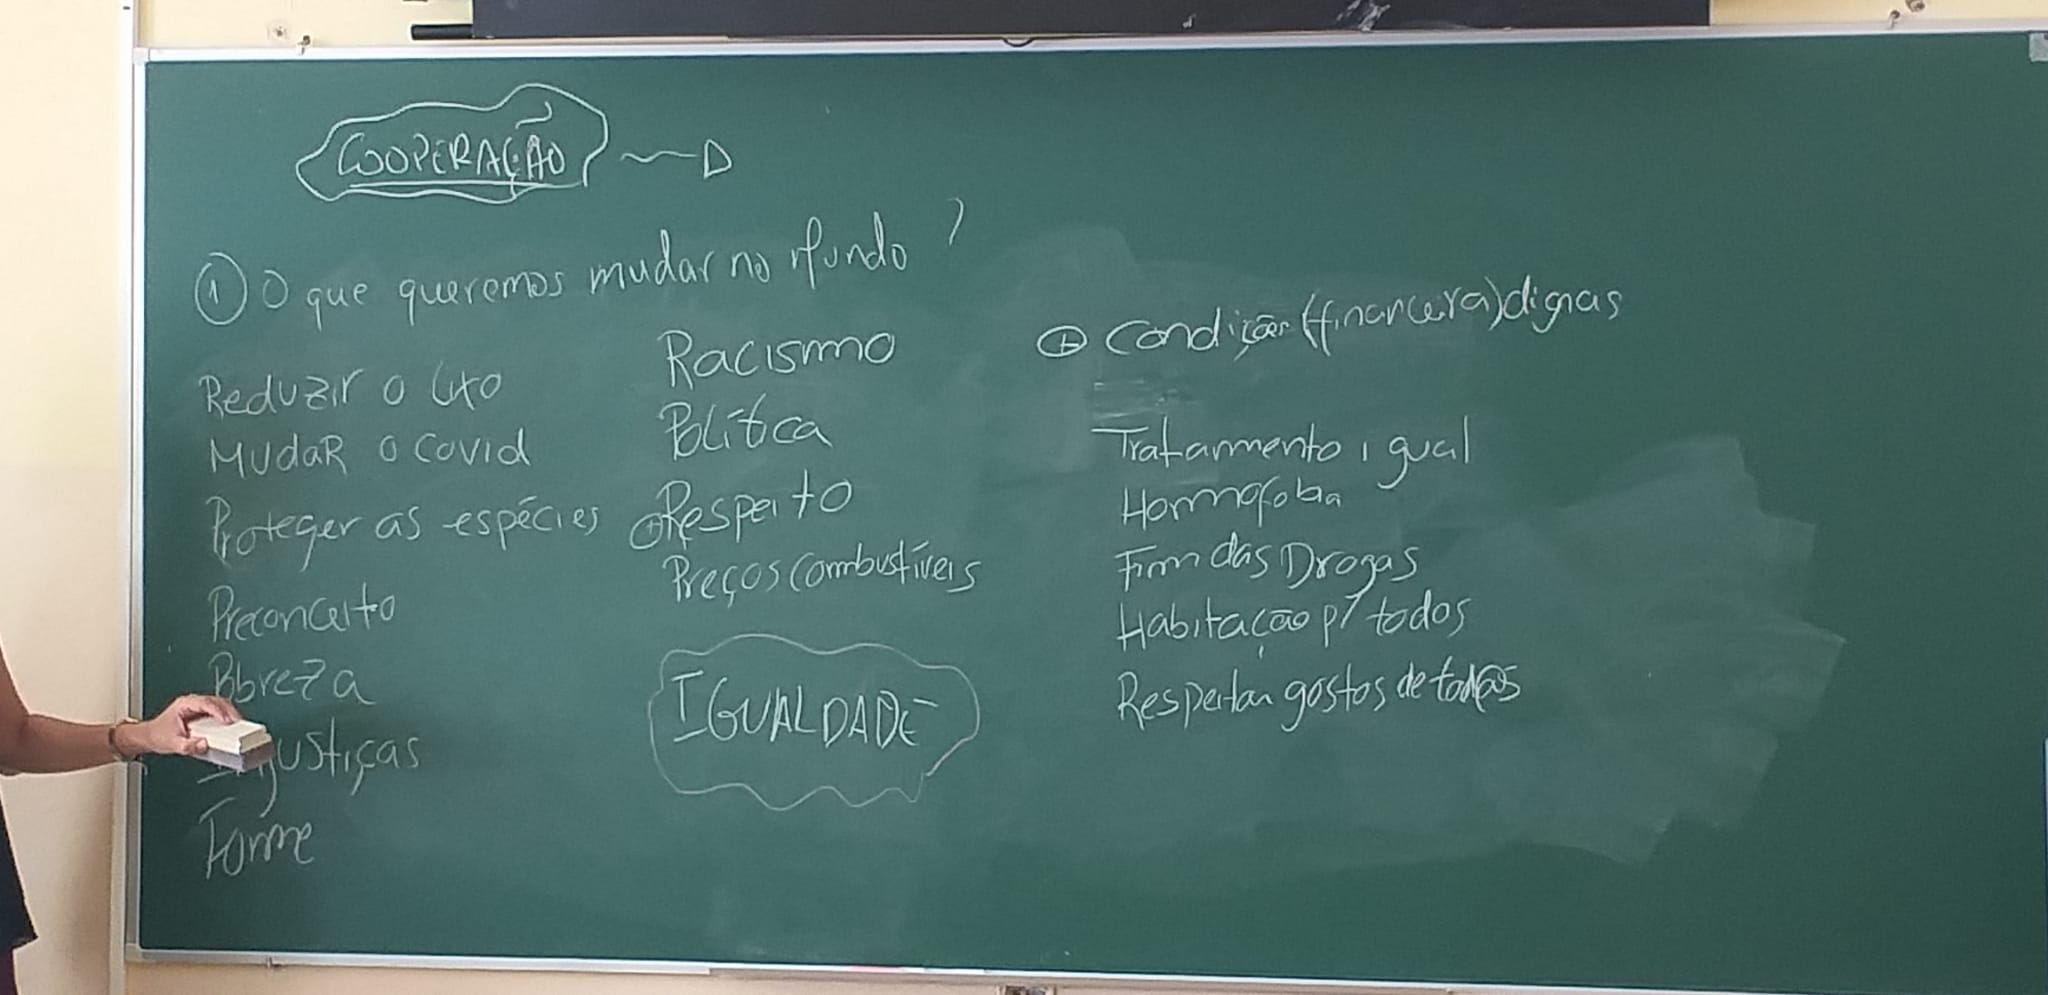 COOPERAÇÃO
① O que queremos mudar no Mundo ?
Reduzir o lixo
Mudar o covid
Proteger as espécies
Preconceito
Pobreza
Injustiças
Fome
Racismo
Política
⊕ Respeito
Preços combustíveis
IGUALDADE
⊕ Condições (financeira) dignas
Tratamento igual
Homofobia
Fim das Drogas
Habitação p/ todos
Respeitar gostos de tod@s